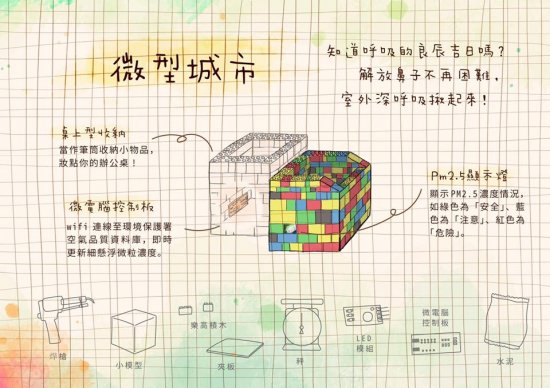 微型城市
知道呼吸的良辰吉日嗎?
解放鼻子不再困難,
室外深呼吸揪起來!
桌上型收納
當作筆筒收納小物品,
妝點你的辦公桌!
微電腦控制板
wifi 連線至環境保護署
空氣品質資料庫,即時
更新細懸浮微粒濃度。
Pm2.5顯示燈
顯示PM2.5濃度情況,
如綠色為「安全」、藍
色為「注意」、紅色為
「危險」。
焊槍
小模型
樂高積木
夾板
秤
LED
模組
微電腦
控制板
水泥